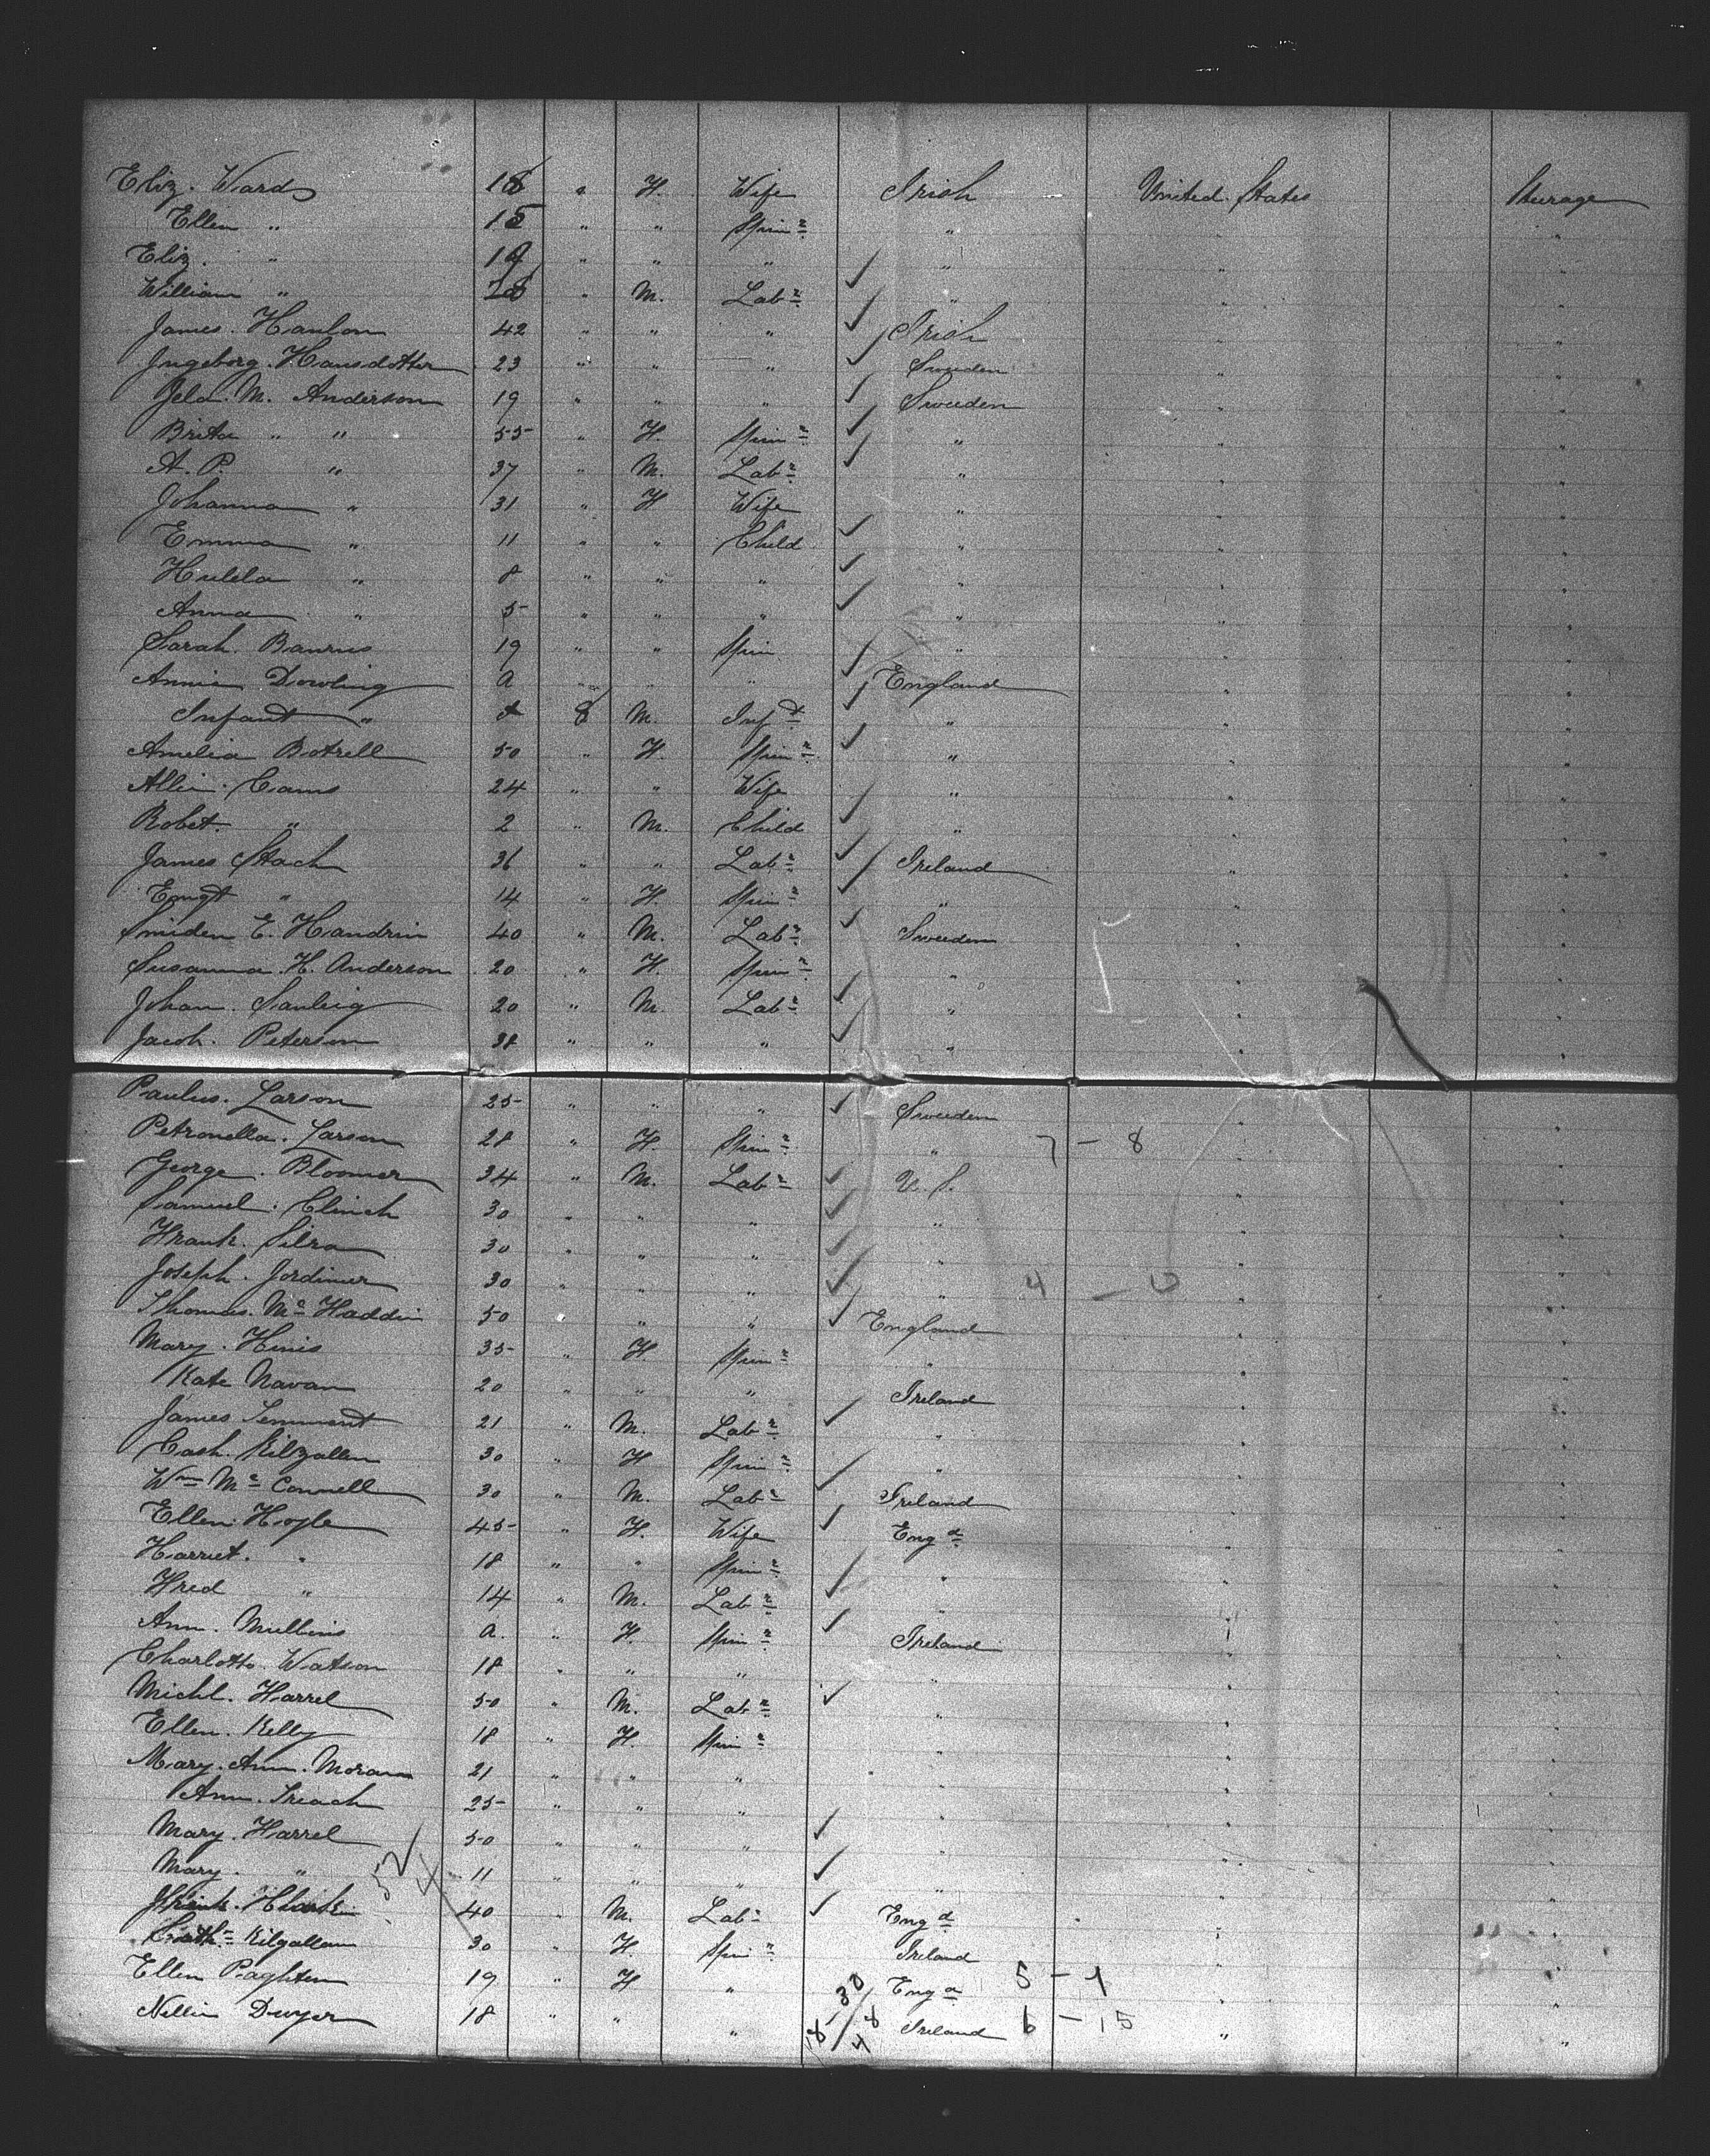 Eliz. Wards 18 " F. Wife Irish United States Steerage
Ellen " 15 " " Spinr " " "
Eliz. " 19 " " " " " "
William " " M. Labr " " "
James Hanlon 42 " " " Irish " "
Ingeborg Hansdotter 23 " " " Sweden " "
M. Anderson 19 " " " Sweden " "
Brita " " 55 " F. Spinr " " "
A. P. " 37 " M. Labr " " "
Johanna " 31 " F Wife " " "
Emma " 11 " " Child " " "
Hulda " 8 " " " " " "
Anna " 5 " " " " " "
Sarah 19 " " Spin " " "
Annie Dowling A " " " England " "
Infant " M. Inft " " "
Amelia Botrell 50 " F. Spinr " " "
24 " " Wife " " "
Robet. " 2 " M. Child " " "
James Stach 36 " " Labr Ireland " "
" 14 " F. Spinr " " "
40 " M. Labr Sweden " "
Susanna H. Anderson 20 " F. Spinr " " "
Johan 20 " M. Labr " " "
Jacob Peterson 38 " " " " " "
Paulus Larson 25 " " " Sweden " "
Petronella Larson 28 " F. Spinr " 7 - 8 " "
George Bloomer 34 " M. Labr U.S. " "
Samuel Clinch 30 " " " " " "
Frank Silra 30 " " " " " "
Joseph Jordiner 30 " " " " " "
Thomas Mc Faddin 50 " " " England " "
Mary 35 " F. Spinr " " "
Kate Navan 20 " " " Ireland " "
James 21 " M. Labr " " "
Cath. Kilgallen 30 " F Spinr " " "
Wm Mc Connell 30 " M. Labr Ireland " "
Ellen 45 " F. Wife Engd " "
Harriet " 18 " " Spinr " " "
Fred " 14 " M. Labr " " "
Ann Mullins A. " F. Spinr Ireland " "
Charlotte Watson 18 " " " " " "
Michl. Farrel 50 " M. Labr " " "
Ellen Kelly 18 " F. Spinr " " "
Mary Ann Moran 21 " " " " " "
Ann 25 " " " " " "
Mary Farrel 50 " " " " " "
Mary " 11 " " " " " "
40 " M. Labr Engd " "
Kilgallen 30 " F. Spinr Ireland " "
Ellen 19 " F " Engd 5 - 1 " "
Nellie Dwyer 18 " " " Ireland 6 - 15 " "